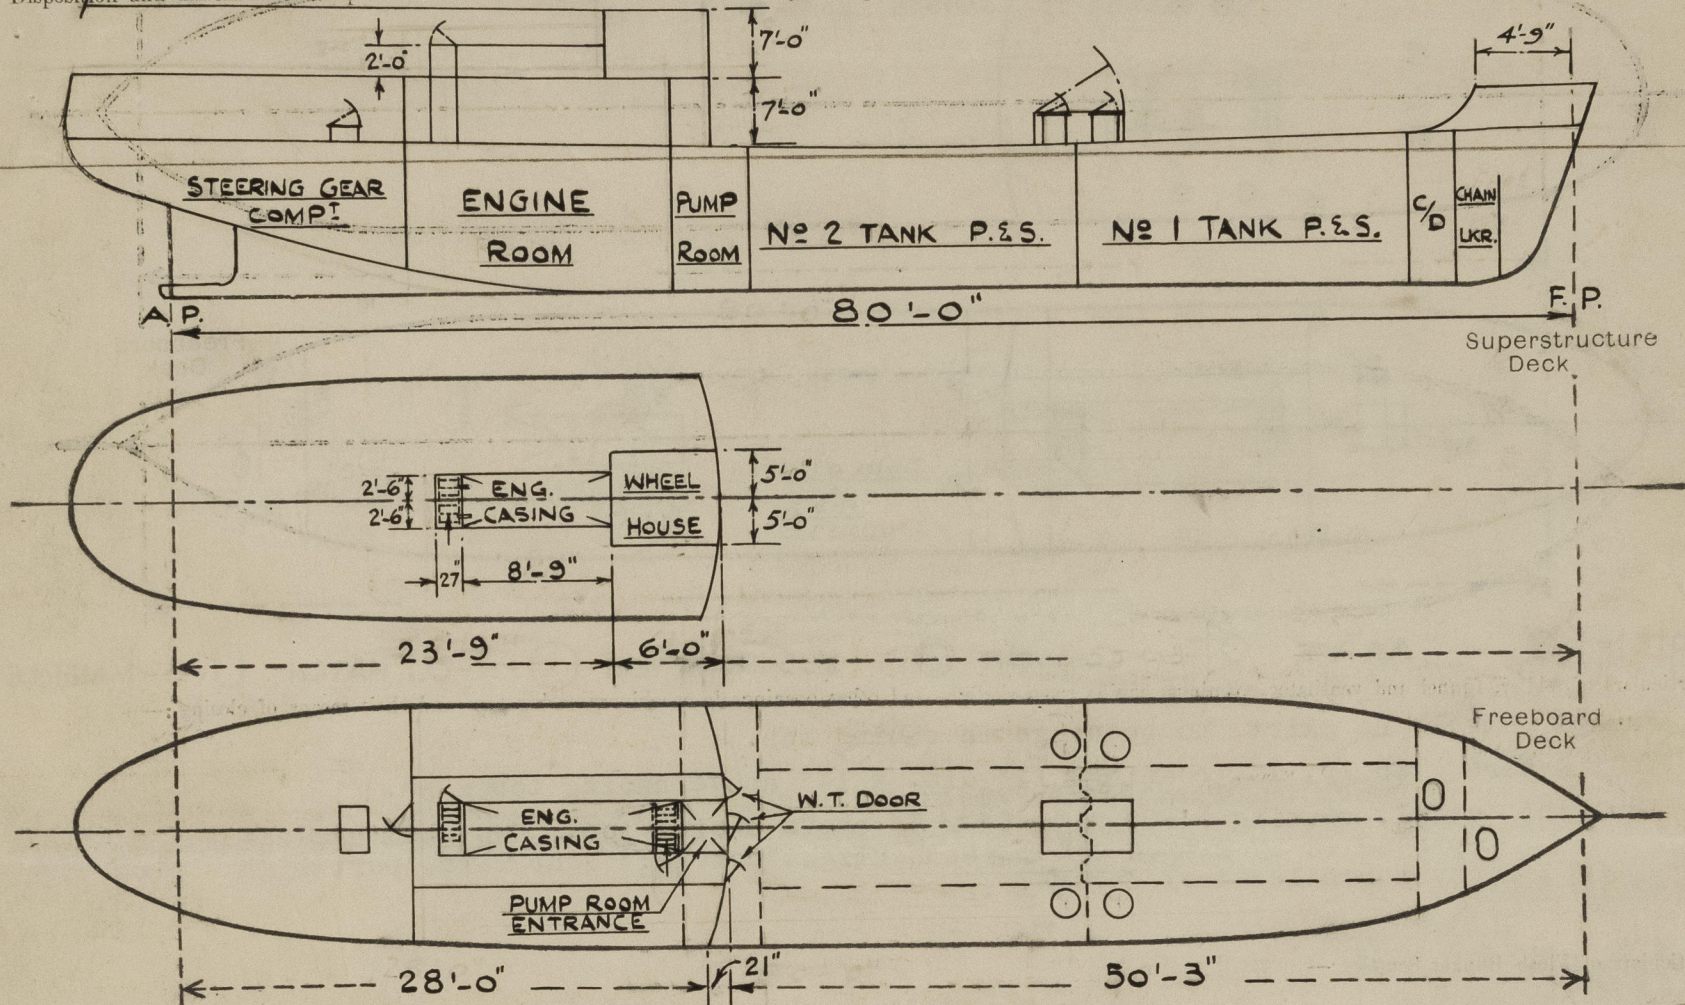 Disposition and
7'-0"
2'-0"
7'-0"
4'-9"
STEERING GEAR
COMPT
ENGINE
ROOM
PUMP
ROOM
Nº 2 TANK P.&S.
Nº 1 TANK P.&S.
C/D
CHAIN
LKR.
A.P.
80'-0"
F.P.
Superstructure
Deck
2'-6"
2'-6"
ENG.
CASING
WHEEL
HOUSE
5'-0"
5'-0"
27"
8'-9"
23'-9"
6'-0"
Freeboard
Deck
W.T. DOOR
ENG.
CASING
PUMP ROOM
ENTRANCE
28'-0"
21"
50'-3"